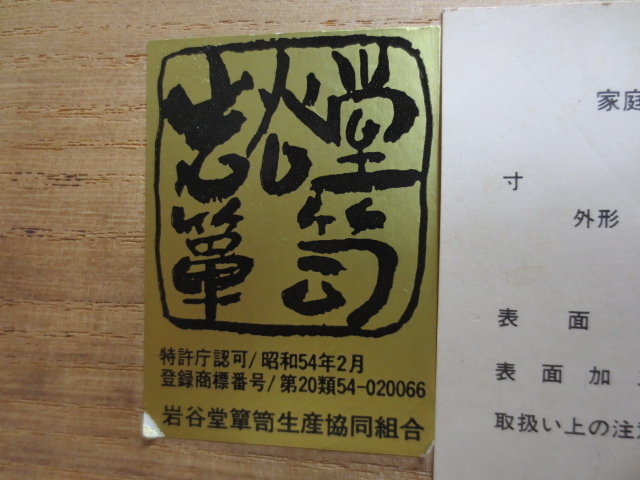 岩谷堂
箪笥
特許庁認可/昭和54年2月
登録商標番号/第20類54-020066
岩谷堂簞笥生産協同組合
家庭
寸
外形
表面
表面加
取扱い上の注